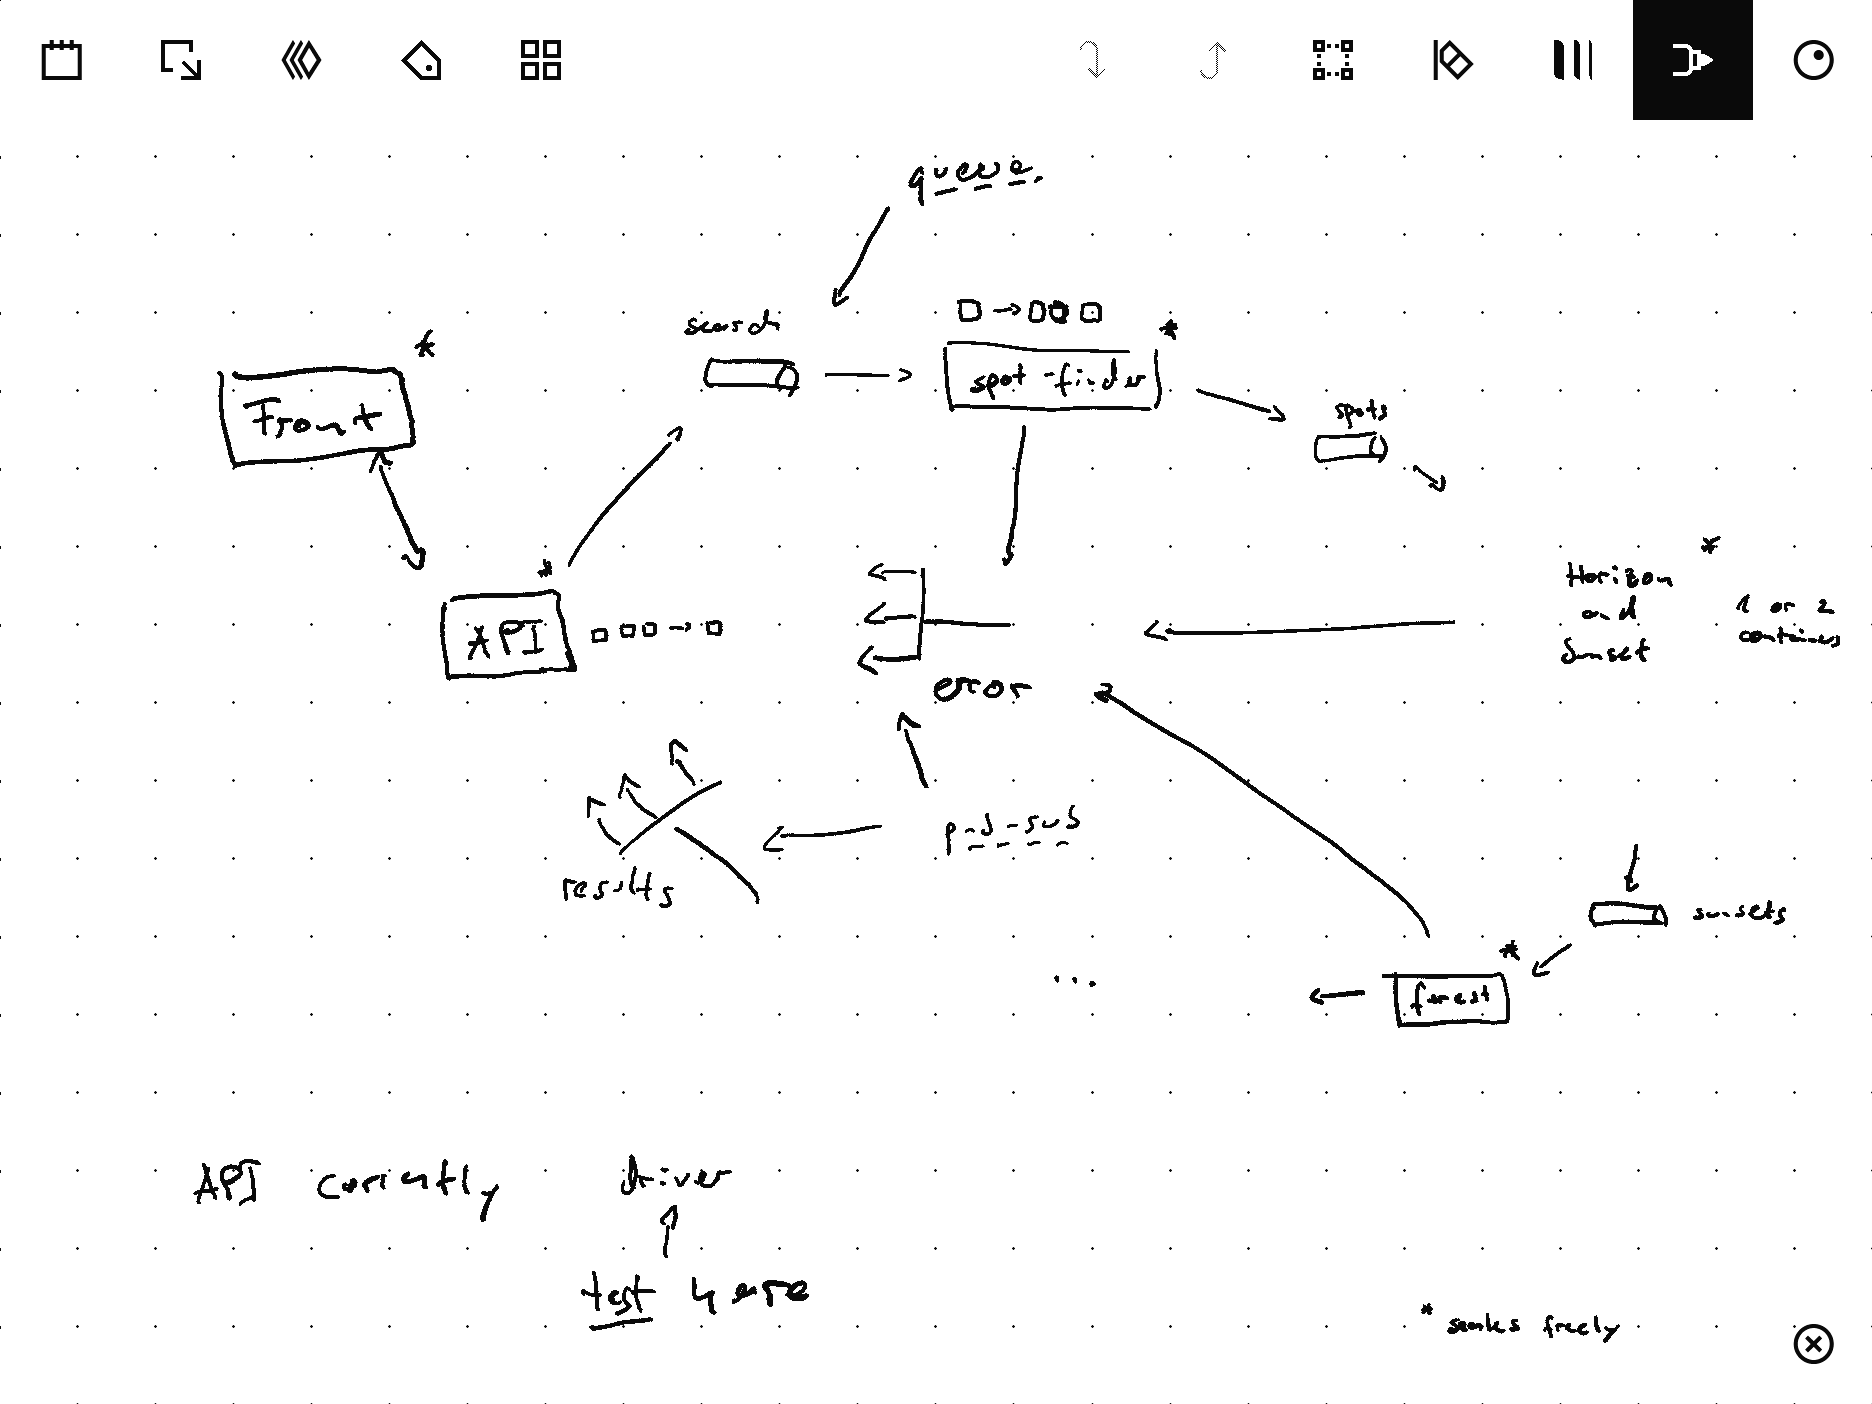 queue
search
spot-finder
Front
spots
API
Horizon
and
Sunset
1 or 2
containers
error
pub-sub
results
sunsets
API
driver
test here
* scales freely